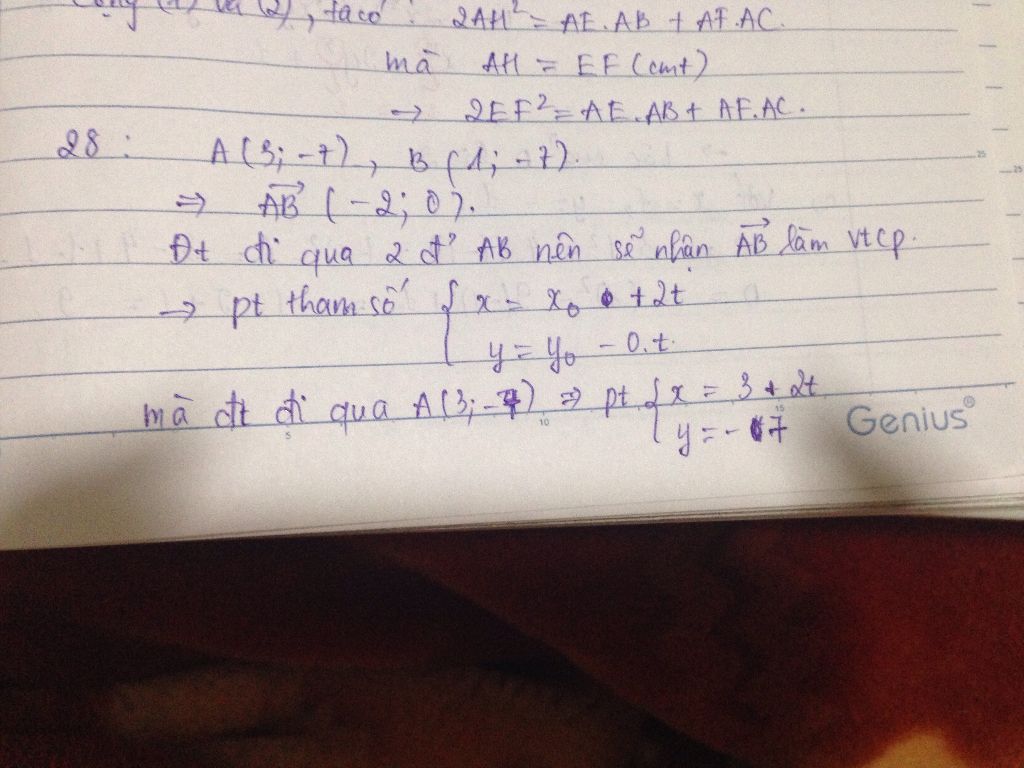 Cộng (1) và (2), ta có : 2AH² = AE.AB + AF.AC.
mà AH = EF (cmt)
→ 2EF² = AE.AB + AF.AC.
28 : A(3; -7), B(1; -7).
⇒ AB→ (-2; 0).
Đt đi qua 2 đ' AB nên sẽ nhận AB→ làm vtcp.
→ pt tham số { x = x₀ + 2t
y = y₀ - 0.t
mà đt đi qua A(3; -7) ⇒ pt { x = 3 + 2t
y = -7
Genius®